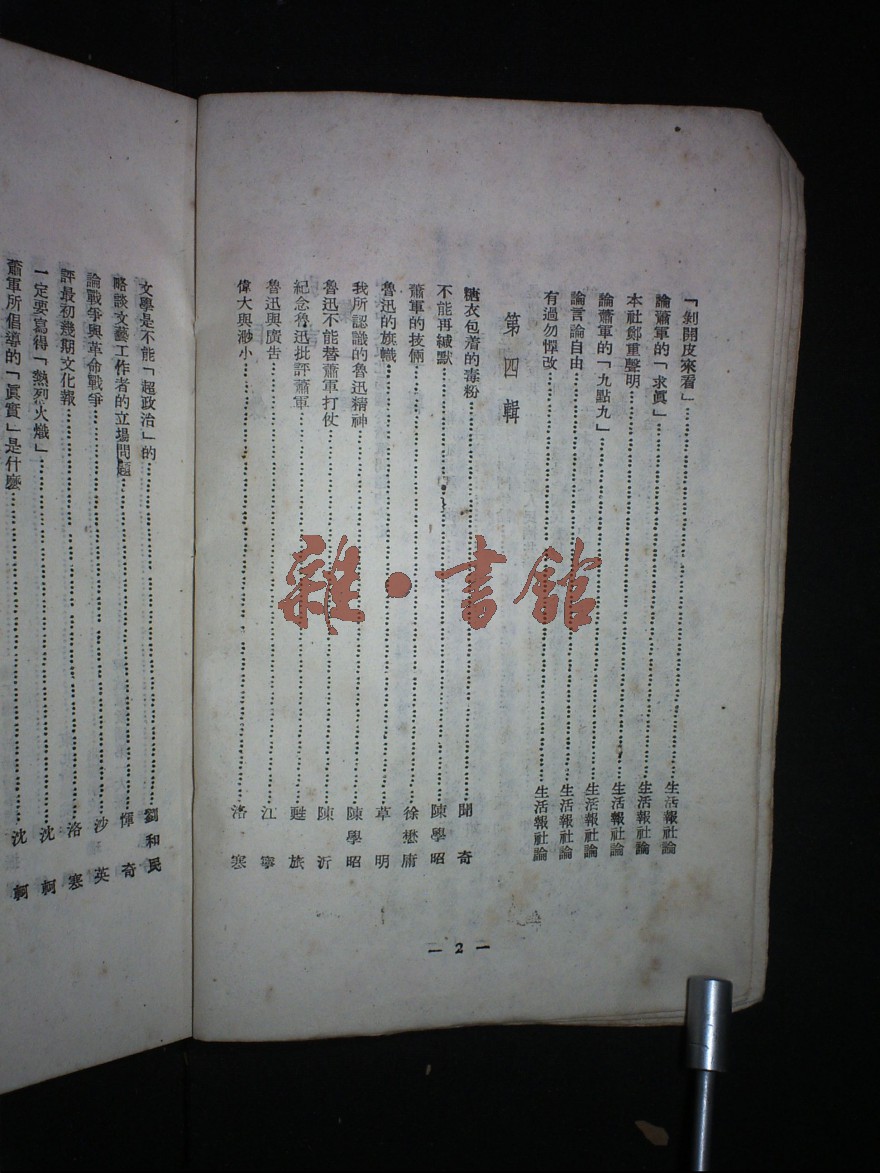 「剝開皮來看」 生活報社論
論蕭軍的「求眞」 生活報社論
本社鄭重聲明 生活報社論
論蕭軍的「九點九」 生活報社論
論言論自由 生活報社論
有過勿憚改 生活報社論
第四輯
糖衣包着的毒粉 聞奇
不能再緘默 陳學昭
蕭軍的技倆 徐懋庸
魯迅的旗幟 草明
我所認識的魯迅精神 陳學昭
魯迅不能替蕭軍打仗 陳沂
紀念魯迅批評蕭軍 甦旅
魯迅與廣告 江寧
偉大與渺小 洛寒
— 2 —
文學是不能「超政治」的 劉和民
略談文藝工作者的立場問題 惲奇
論戰爭與革命戰爭 沙英
評最初幾期文化報 洛寒
一定要寫得「熱列火熾」 沈軻
蕭軍所倡導的「眞實」是什麼 沈軻
雜·書館